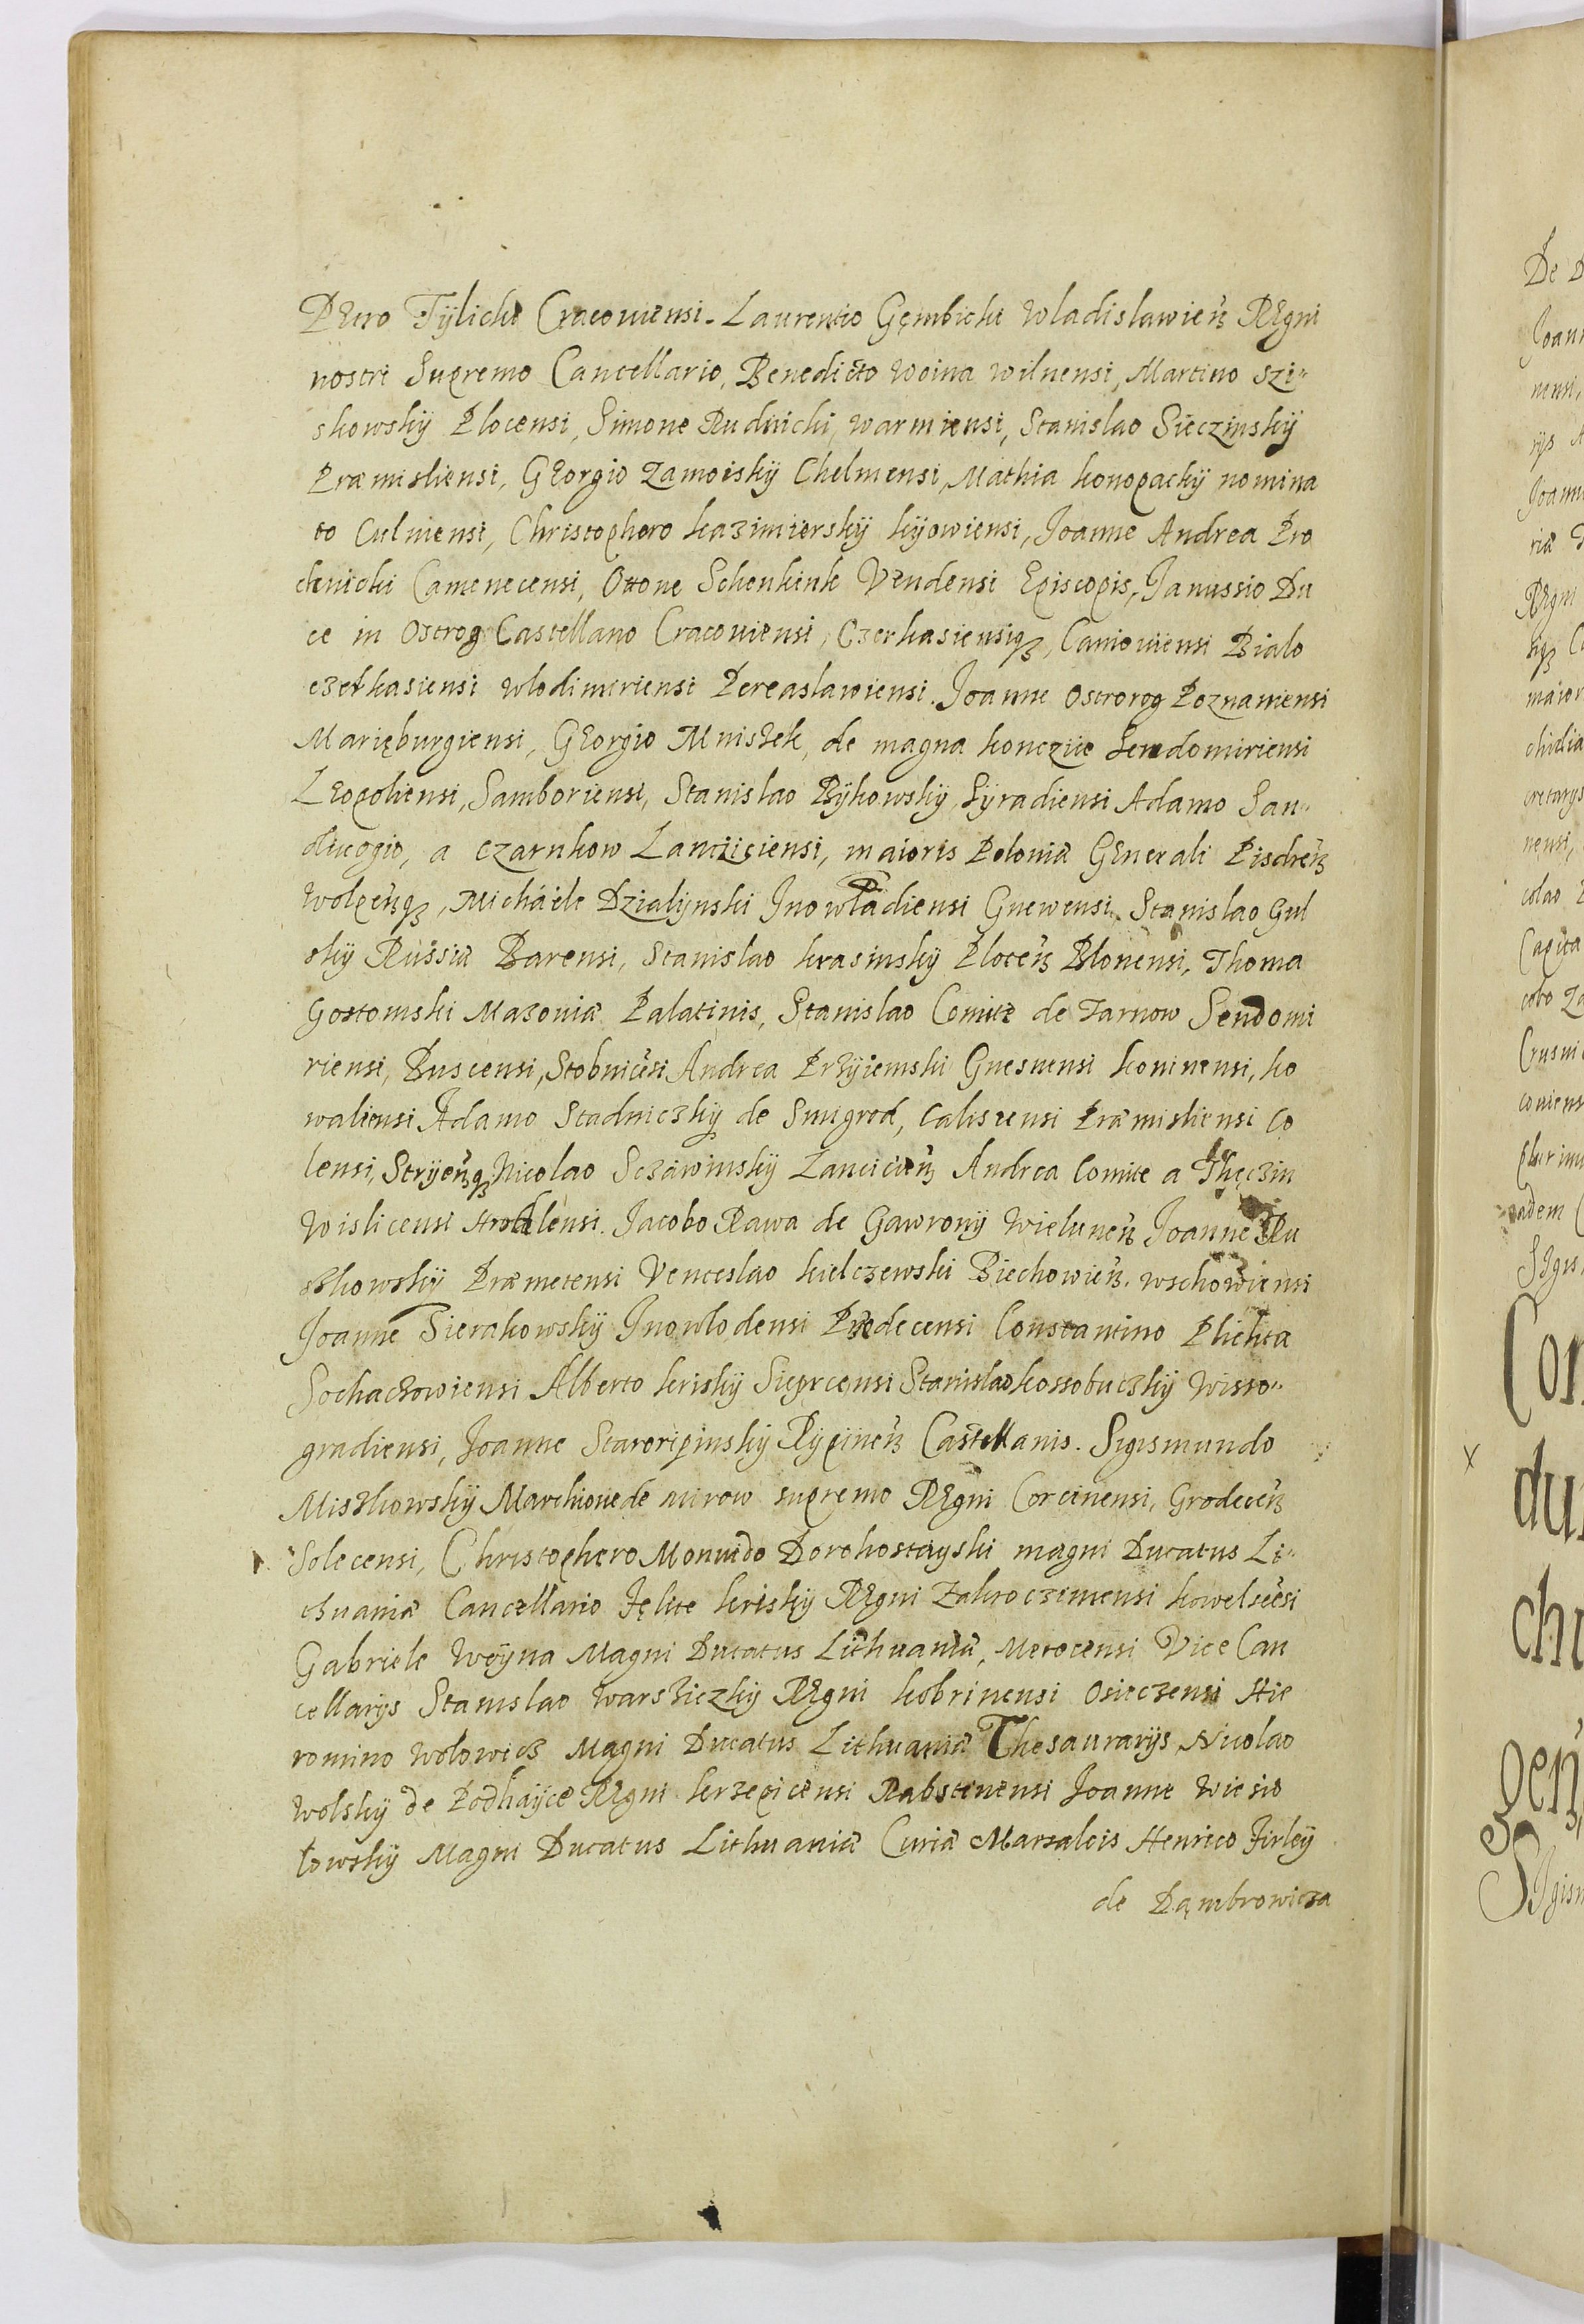 PEtro Tÿlicki Cracouiensi. Laurentio Gęmbicki Wladislawien̄ REgni
nostri Supremo Cancellario, Benedicto Woina Wilnensi, Martino Szi„
skowskÿ Plocensi, Simone Rudnicki, Warmiensi, Stanislao Sieczinskÿ
Præmisliensi, GEorgio Zamoiskÿ Chelmensi, Mathia Konopackÿ nomina
to Culmensi, Christophoro Kazimierskÿ Kÿowiensi, Joanne Andrea Pro
chnicki Camenecensi, Ottone Schenkink Vendensi Episcopis, Janussio Du
ce in Ostrog Castellano Cracouiensi, Czerkasiensiqȝ, Caniouiensi Bialo
czerkasiensi Wlodimiriensi Pereaslawiensi. Joanne Ostrorog Poznaniensi
Marięburgiensi, GEorgio Mniszek, de magna Koncziic Sendomiriensi
LEopoliensi, Samboriensi, Stanislao Bÿkowskÿ Sÿradiensi Adamo San„
diuogio, a Czarnkow Lanciciensi, maioris Poloniæ GEnerali Pisdren̄
Wolpen̄qȝ, Michaële Dzialÿnski Inowladiensi Gnewensi. Stanislao Gul
skÿ Russiæ Barensi, Stanislao Krasinskÿ Plocen̄ Blonensi, Thoma
Gostomski Mazouiæ Palatinis, Stanislao Comite de Tarnow Sendomi
riensi, Buscensi, Stobnicēsi Andrea Przÿiemski Gnesnensi Koninensi, Ko
waliensi Adamo Stadniczkÿ de Smigrod, Calissensi Præmisliensi Co
lensi, Strÿen̄qȝ Nicolao Sczawinskÿ Lancicien̄ Andrea Comite a Thęczin
Wislicensi Hrodlensi. Jacobo Rawa de Gawronÿ Wielunen̄ Joanne Ru
szkowskÿ Præmetensi Venceslao Kielczewski Biechowien̄. Wschowiensi
Joanne Sierakowskÿ Inowlodensi Predecensi Constantino Plichta
Sochaczowiensi Alberto Kriskÿ Sieprcensi Stanislao Kossobuczkÿ Wisso„
gradiensi, Joanne Staroripinskÿ Rÿpinen̄ Castellanis. Sigismundo
Miszkowskÿ Marchione de Mirow supremo REgni Corcinensi, Grodecen̄
Solecensi, Christophero Monuido Dorohostayski magni Ducatus Li„
thuaniæ Cancellario Fęlice Kriskÿ REgni Zakroczimensi Kowelscēsi
Gabriele Woÿna Magni Ducatus Lithuaniæ, Merocensi Vice Can
cellarijs Stanislao Warsziczkÿ REgni Kobrinensi Osieczensi Hie
romino Wolowicz Magni Ducatus Lithuaniæ Thesaurarijs Nicolao
Wolskÿ de Podhaÿce REgni Krzepicensi Rabstinensi Joanne Wiesio
lowskÿ Magni Ducatus Lithuaniæ Curiæ Marsalcis Henrico Firleÿ
de Dąmbrowicza